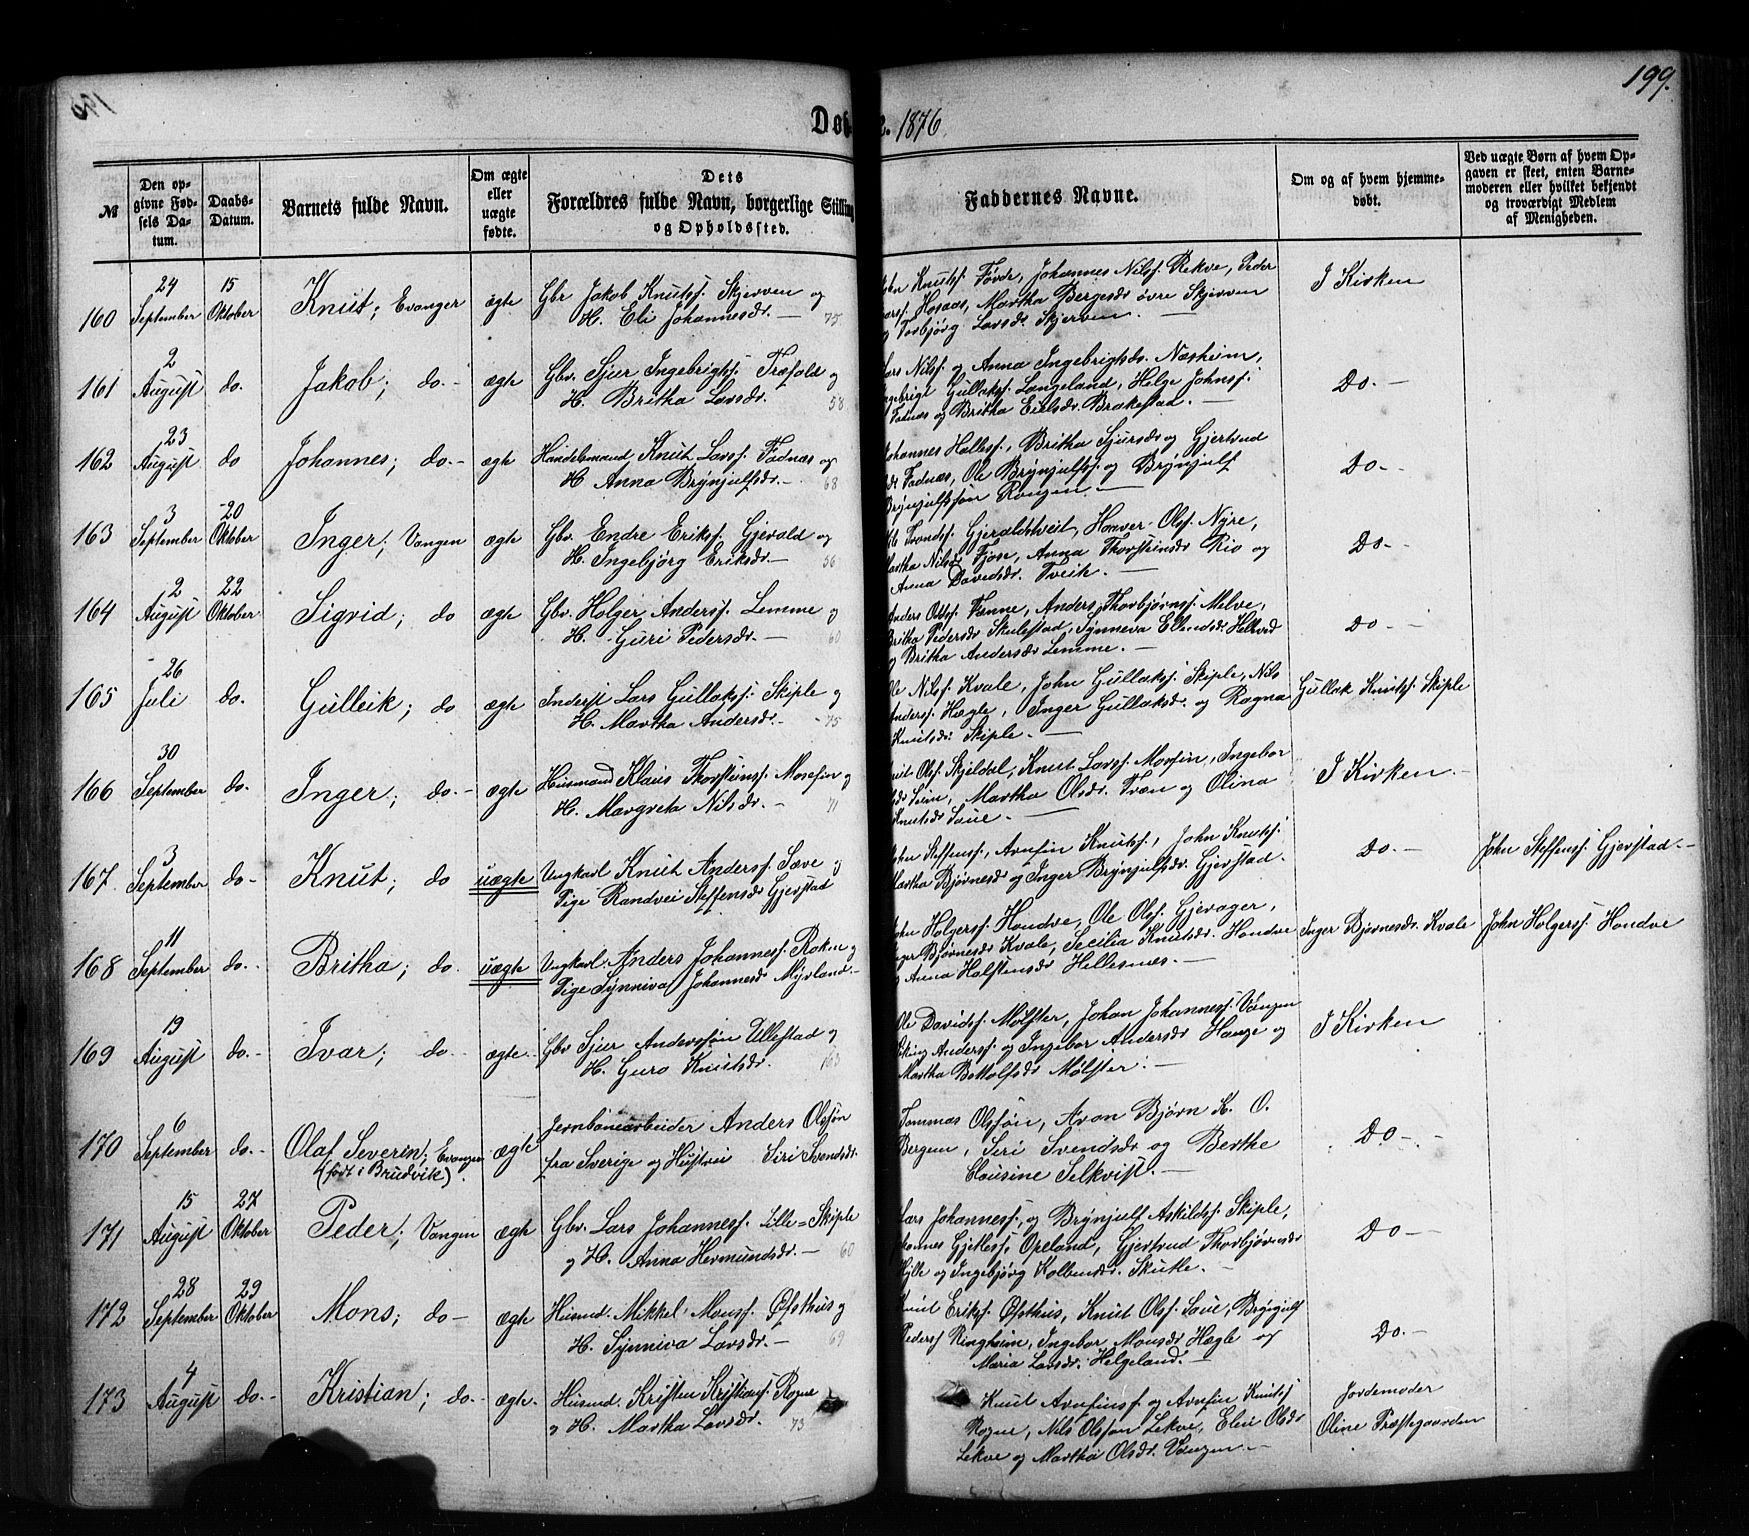 199.
Døbte. 1876
№
Den opgivne Fødsels Datum.
Daabs-Datum.
Barnets fulde Navn.
Om ægte eller uægte fødte.
Dets Forældres fulde Navn, borgerlige Stilling og Opholdssted.
Faddernes Navne.
Om og af hvem hjemmedøbt.
Ved uægte Børn af hvem Opgaven er skeet, enten Barnemoderen eller hvilket bekjendt og troværdigt Medlem af Menigheden.
160 24 September 15 Oktober Knut; Evanger ægte Gbr Jakob Knutsf. Skjerven og
H. Eli Johannesdr. — 75
Knutsf. Førde, Johannes Nilsf. Rekve, Peder
Hosaas, Martha Bergesdr øvre Skjerven
Torbjørg Larsdr Skjerven. —
I Kirken
161 2 August do. Jakob; do.- ægte Gbr. Sjur Ingebrigtsf. Træfald og
H. Britha Larsdr. 58
Lars Nilsf. og Anna Ingebrigtsdr. Næsheim,
Ingebrigt Gullaksf. Langeland, Helge Johnsf.
Fadnæs og Britha Eielsdr. Brakestad. —
Do. -
162 23 August do Johannes; do.- ægte Handelsmand Knut Larsf. Fadnæs og
H. Anna Brynjulfsdr. - 68
Johannes Hallesf., Britha Sjursdr og Gjertrud
Fadnæs, Ole Brynjulfsf. og Brynjulf
Brynjulfsøn Rongen. —
Do -
163 3 September 20 Oktober Inger; Vangen ægte Gbr. Endre Eriksf. Gjerald og
H. Ingebjørg Eriksdr. — 56
Trondsf. Gjeraldstveit, Haaver Olsf. Nyre,
Martha Nilsdr Fjose, Anna Thorsteinsdr Rio og
Anna Davidsdr. Tveit. —
Do -
164 2 August 22 Oktober Sigrid; do ægte Gbr. Holger Andersf. Lemme og
H. Guri Pedersdr. — 60
Anders Oddsf. Fenne, Anders Thorbjørnsf. Melve,
Britha Pedersdr Skulestad, Synneva Ellendsdr. Hellved
og Britha Andersdr Lemme. —
Do -
165 26 Juli do. Gulleik; do ægte Inderst Lars Gullaksf. Skiple og
H. Martha Andersdr. - 75
Ole Nilsf. Kvale, John Gullaksf. Skiple, Nils
Andersf. Hægle, Inger Gullaksdr. og Ragna
Knutsdr: Skiple. —
Gullak Knutsf. Skiple
166 30 September do. Inger; do.- ægte Husmand Klaus Thorsteinsf. Mosefin og
H. Margreta Nilsdr. - 71
Knut Olsf. Skjeldal, Knut Larsf. Mosfin, Ingebor
Seim, Martha Olsdr. Træn og Olina
Knutsdr Saue. —
I Kirken.
167. 3 September do - Knut; do uægte Ungkarl Knut Andersf. Sæve og
Pige Randvei Steffensdr Gjerstad
John Steffensf., Arnfin Knutsf., John Knutsf.
Martha Bjørnesdr og Inger Brynjulfsdr. Gjerstad.
Do. —
John Steffensf. Gjerstad. —
168 11 September do.- Britha; do. uægte Ungkarl. Anders Johannesf. Roken og
Pige Synniva Johannesdr Myrland —
John Holgersf. Hondve, Ole Olsf. Gjerager,
Inger Bjørnesdr Kvale, Secilia Knutsdr. Hondve
og Anna Halstensdr Hillesnæs. —
Inger Bjørnesdr. Kvale
John Holgersf. Hondve
169 19 August do.- Ivar; do.- ægte. Gbr Sjur Andersøn Ullestad og
H. Guro Knutsdr. 163
Ole Davidsf. Mølster, Johan Johannesf. Vangen
Viking Andersf. og Ingebor Andersdr Hauge og
Martha Bottolfsdr Mølster. —
I Kirken
170 6 September do.- Olaf Severin; Evanger
(født i Brudvik).
ægte Jernbanearbeider Anders Olsøn
fra Sverige og Hustrui Siri Svendsdr
Tommas Olsøn, Aron Bjørn K. O.
Bergem, Siri Svendsdr og Berthe
Clausine Selkvist. —
Do -
171 15 August 27 Oktober Peder; Vangen ægte Gbr. Lars Johannesf. Lille=Skiple
og H. Anna Hermundsdr. — 60
Lars Johannesf., og Brynjulf Askildsf. Skiple,
Johannes Gjetlesf. Opeland, Gjertrud Thorbjørnsdr
og Ingebjørg Kolbensdr. Skutle. —
Do —
172 28 September 29 Oktober Mons; do - ægte Husmd. Mikkel Monsf. Øfsthus og
H. Synniva Larsdr. — 69
Knut Eriksf. Øfsthus, Knut Olsf. Saue, Brynjulf
Pedersf Ringheim, Ingebor Monsdr Hægle og
Maria Larsdr. Helgeland. —
Do. -
173 4 August do.- Kristian; do.- ægte. Husmd. Kristen Kristiansf. Rogne
og H. Martha Larsdr. 73
Knut Arnfinsf. og Arnfin Knutsf
Rogne, Nils Olsøn Lekve, Eleni Olsdr
Lekve og Martha Olsdr. Vangen. —
Jordemoder
Oline Præstegaarden